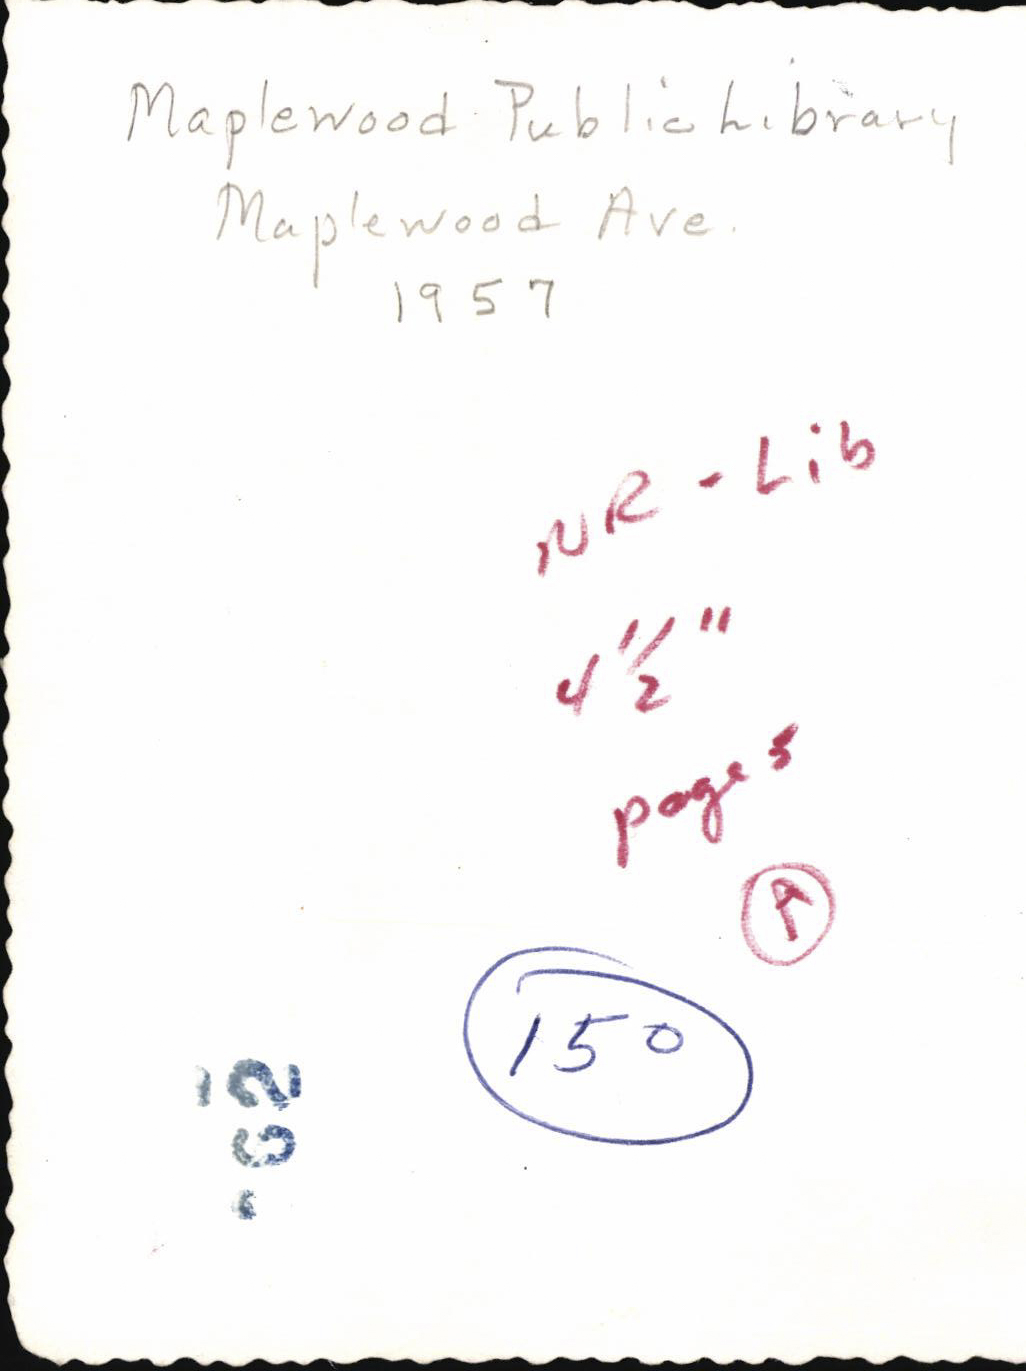 Maplewood Public Library
Maplewood Ave.
1957
NR - Lib
4 1/2"
page 5
A
150